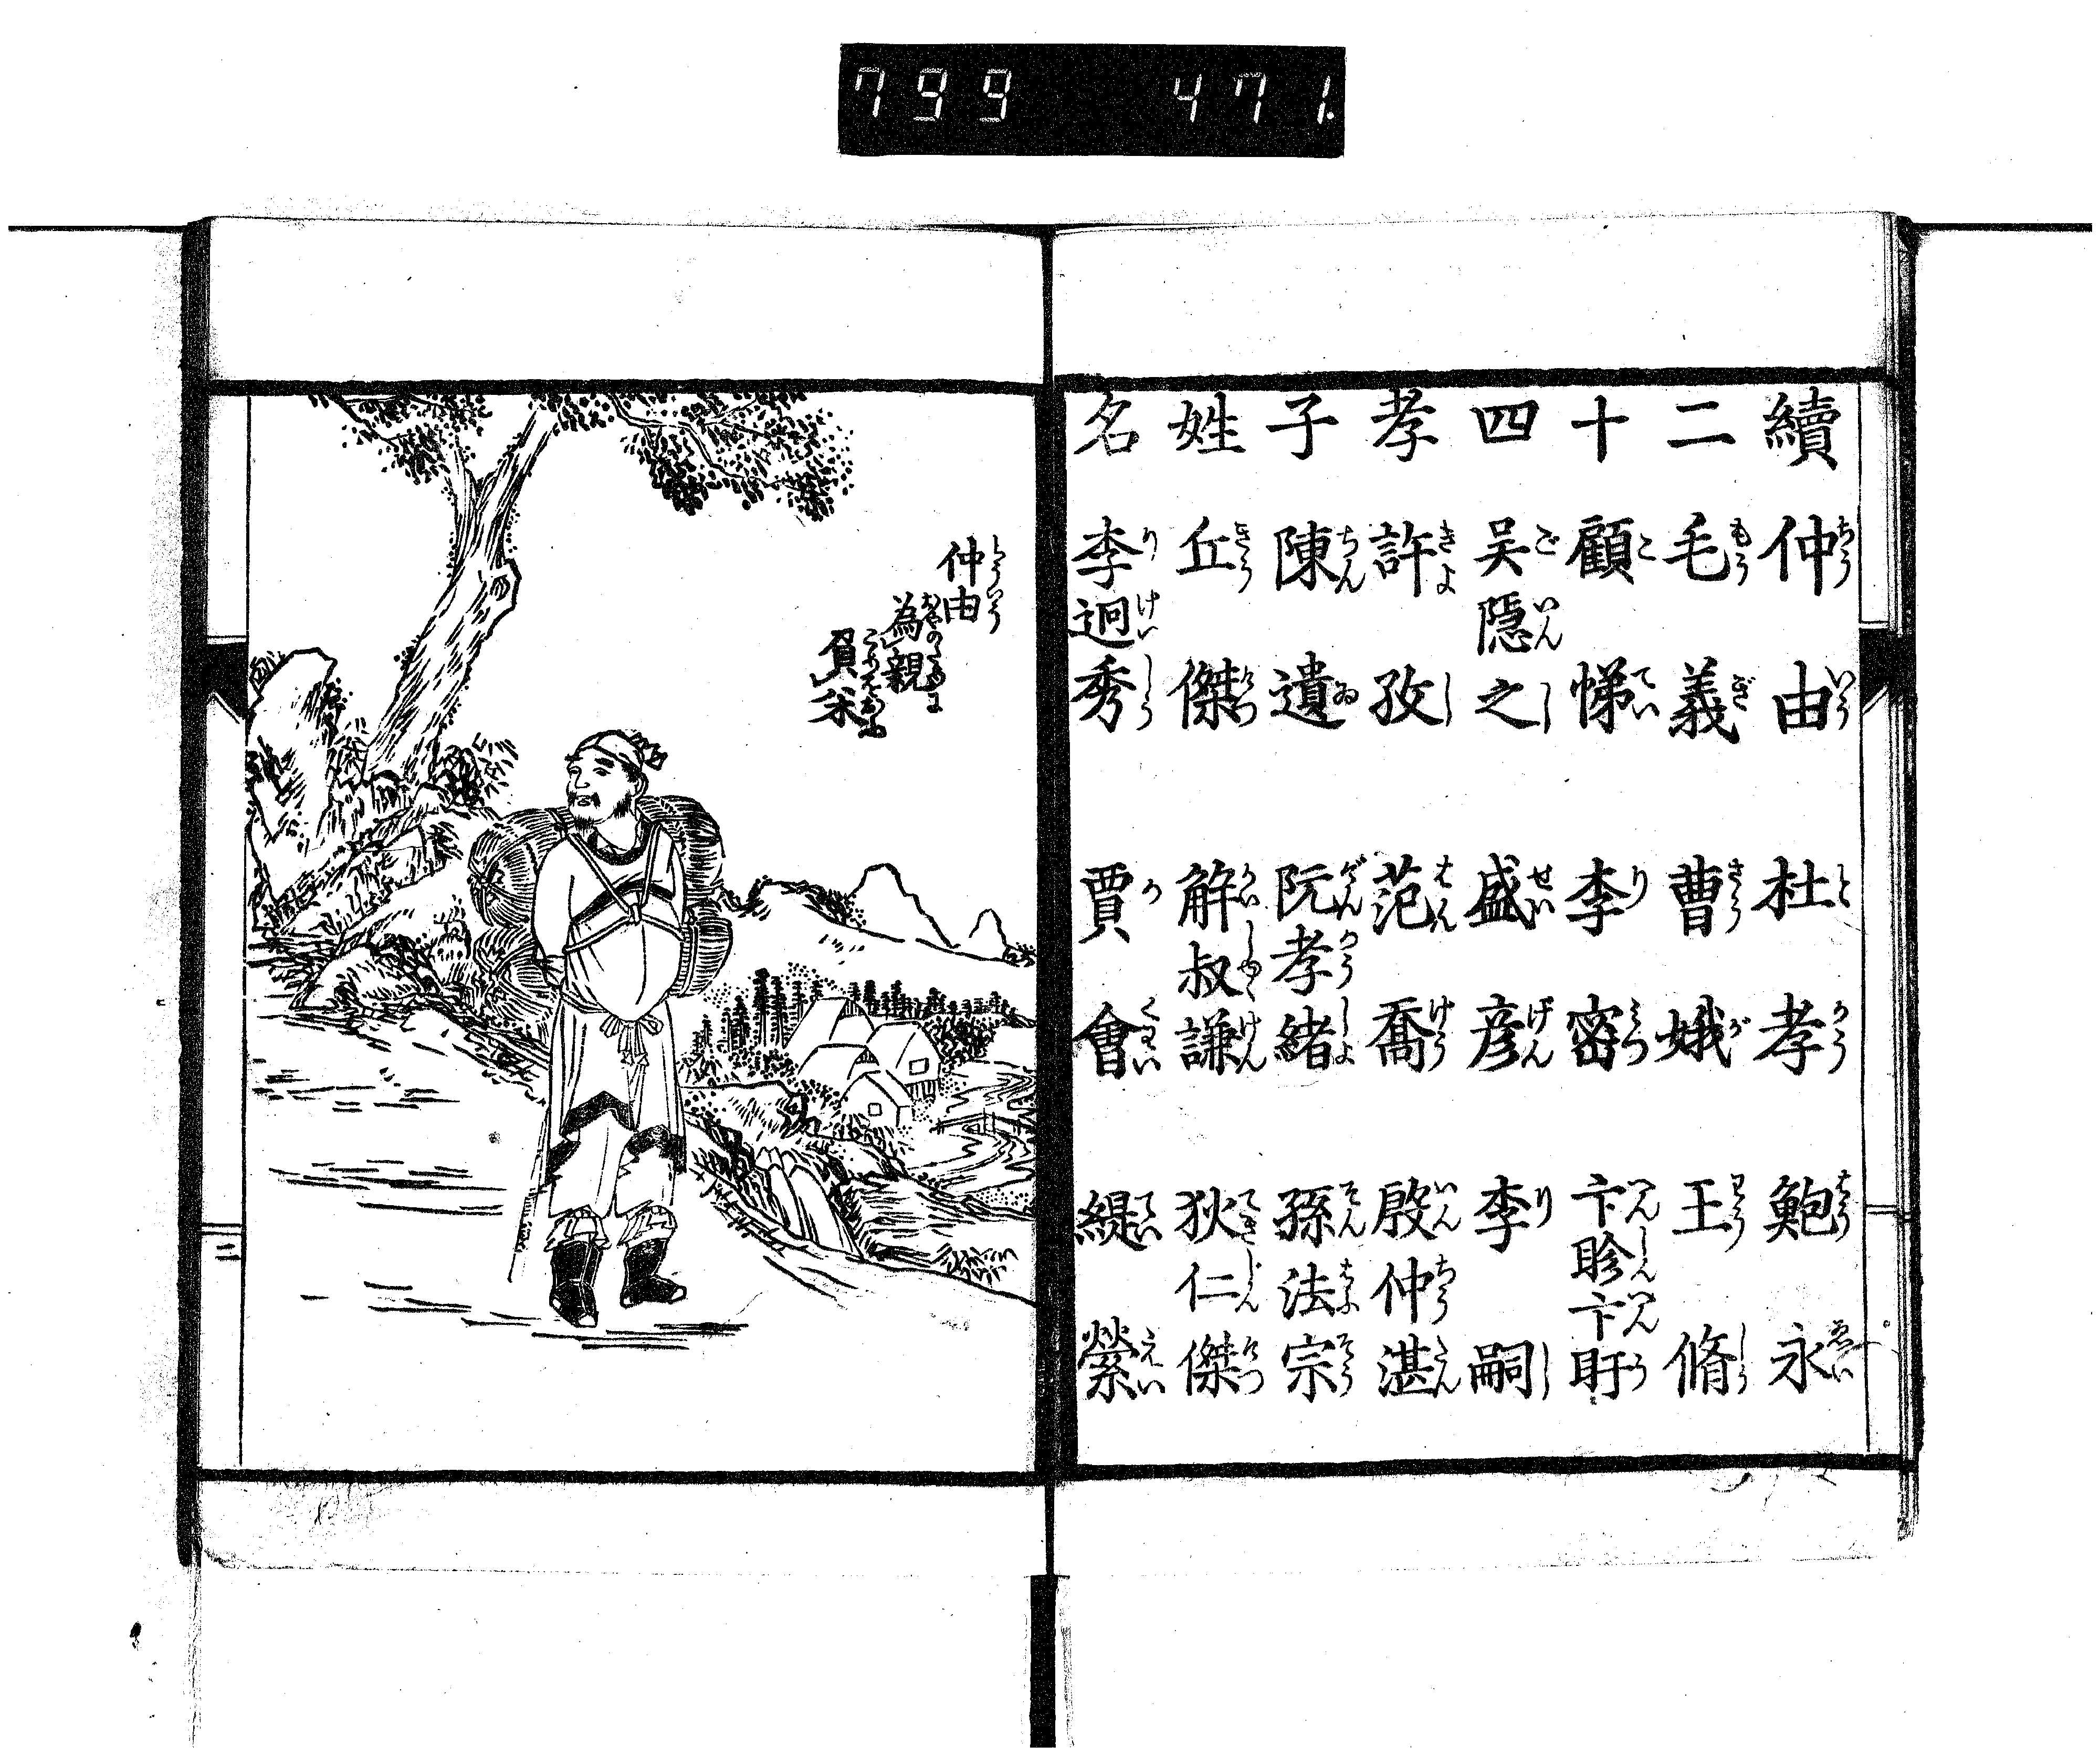 799 471.
續二十四孝子姓名
仲由 杜孝 鮑永
毛義 曹娥 王脩
顧悌 李密 卞眕卞盱
吴隱之 盛彦 李嗣
許孜 范喬 殷仲湛
陳遺 阮孝緒 孫法宗
丘傑 解叔謙 狄仁傑
李迥秀 賈會 緹縈
仲由
為親
負米